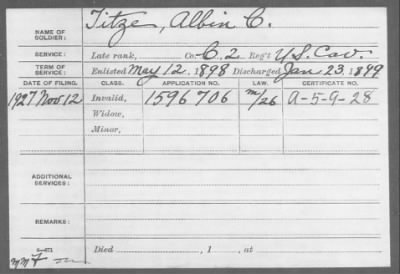 NAME OF SOLDIER: Titze, Albin C.
SERVICE: Late rank, Co. C, 2 Reg't U.S. Cav.
TERM OF SERVICE: Enlisted May 12, 1898 Discharged Jan 23, 1899
DATE OF FILING. CLASS. APPLICATION NO. LAW. CERTIFICATE NO.
1927 Nov 12 Invalid, 1596706 m/26 A-5-9-28
Widow,
Minor,
ADDITIONAL SERVICES:
REMARKS:
Died , 1 , at